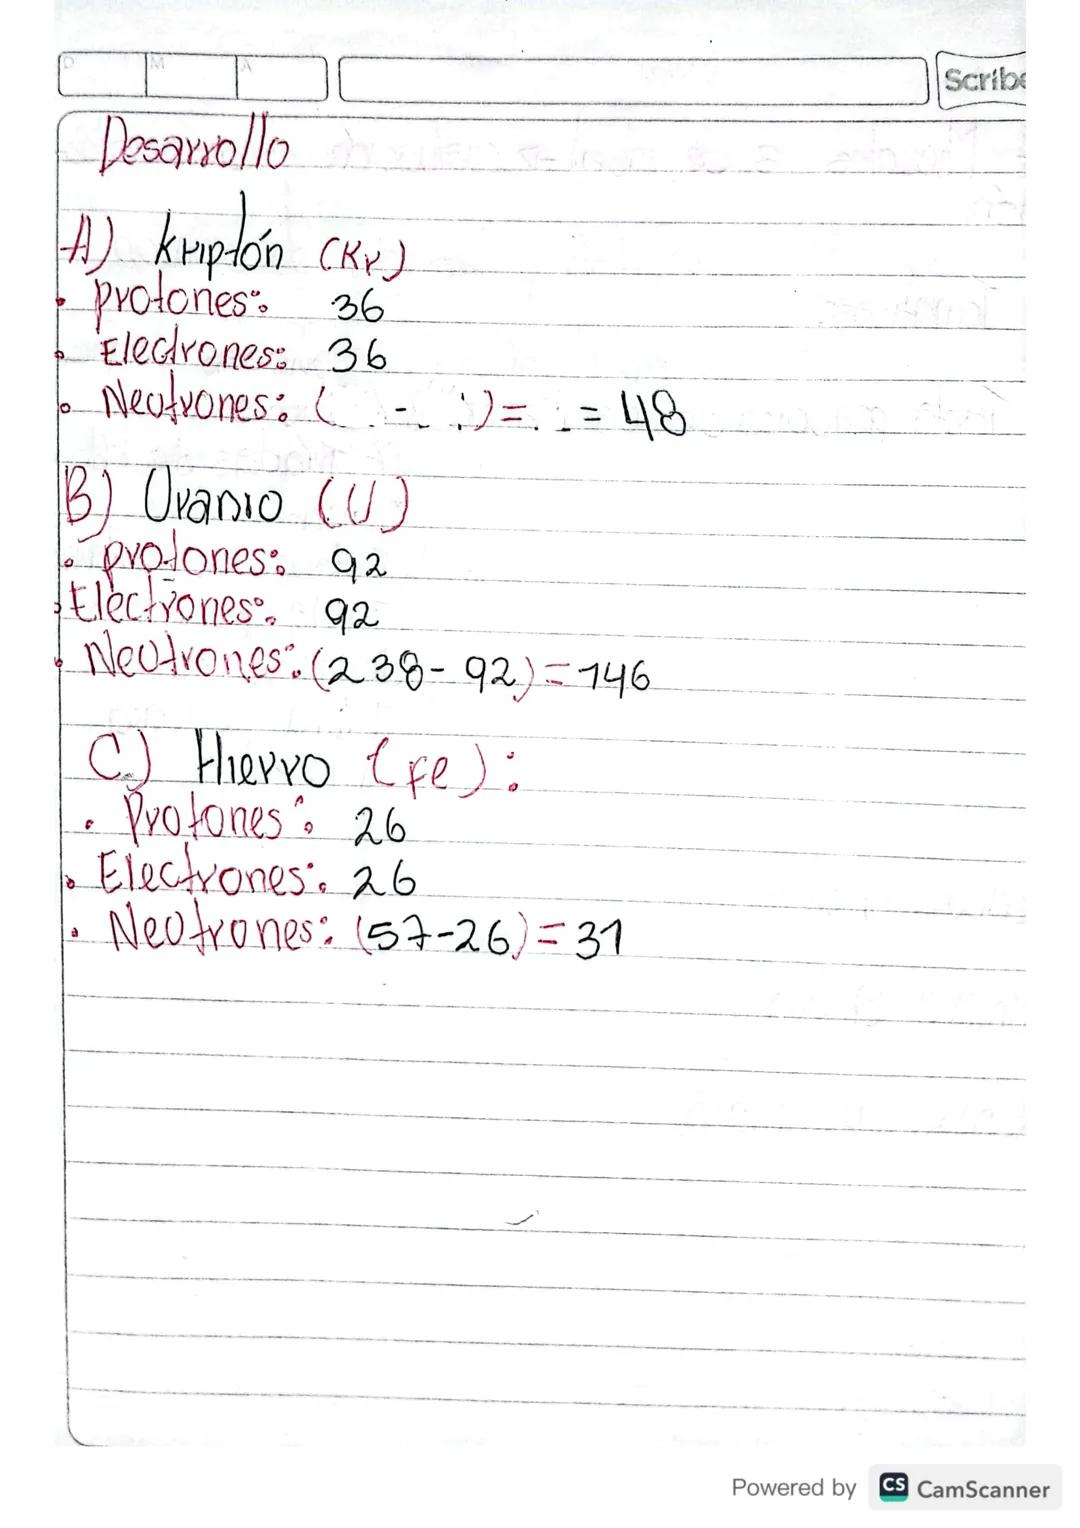 D M A
Scribe
Desarrollo
A) Kriptón (Kr)
• protones: 36
• Electrones: 36
• Neutrones: ( - ) = = 48
B) Uranio (U)
• protones: 92
Electrones: 92
• Neutrones: (238-92)=146
C) Hierro (fe):
• Protones: 26
• Electrones: 26
• Neutrones: (57-26)=31
Powered by CS CamScanner